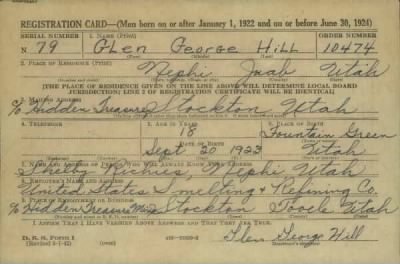 REGISTRATION CARD—(Men born on or after January 1, 1922 and on or before June 30, 1924)
SERIAL NUMBER 1. NAME (Print) ORDER NUMBER
N 79 Glen George Hill 10474
(First) (Middle) (Last)
2. PLACE OF RESIDENCE (Print)
Nephi Juab Utah
[THE PLACE OF RESIDENCE GIVEN ON THE LINE ABOVE WILL DETERMINE LOCAL BOARD
JURISDICTION; LINE 2 OF REGISTRATION CERTIFICATE WILL BE IDENTICAL]
3. MAILING ADDRESS
c/o Hidden Treasure Stockton Utah
4. TELEPHONE 5. AGE IN YEARS 6. PLACE OF BIRTH
18 Fountain Green
DATE OF BIRTH
Sept 20 1923 Utah
7. NAME AND ADDRESS OF PERSON WHO WILL ALWAYS KNOW YOUR ADDRESS
Shelby Nephi, Utah
8. EMPLOYER'S NAME AND ADDRESS
United States Smelting & Refining Co.
9. PLACE OF EMPLOYMENT OR BUSINESS
c/o Hidden Treasure Mine Stockton Tooele Utah
I AFFIRM THAT I HAVE VERIFIED ABOVE ANSWERS AND THAT THEY ARE TRUE.
D. S. S. FORM 1
Glen George Hill